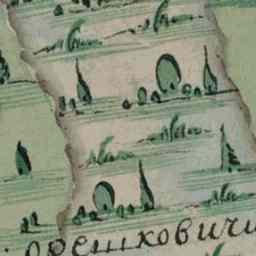 Орешковичи